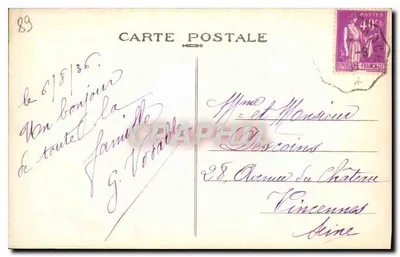 89
CARTE POSTALE
POSTES
le 6/8/36.
Un bonjour
de toute la
famille
G.
Mme et Monsieur
Descoins
28, Avenue du Château
Vincennes
Seine